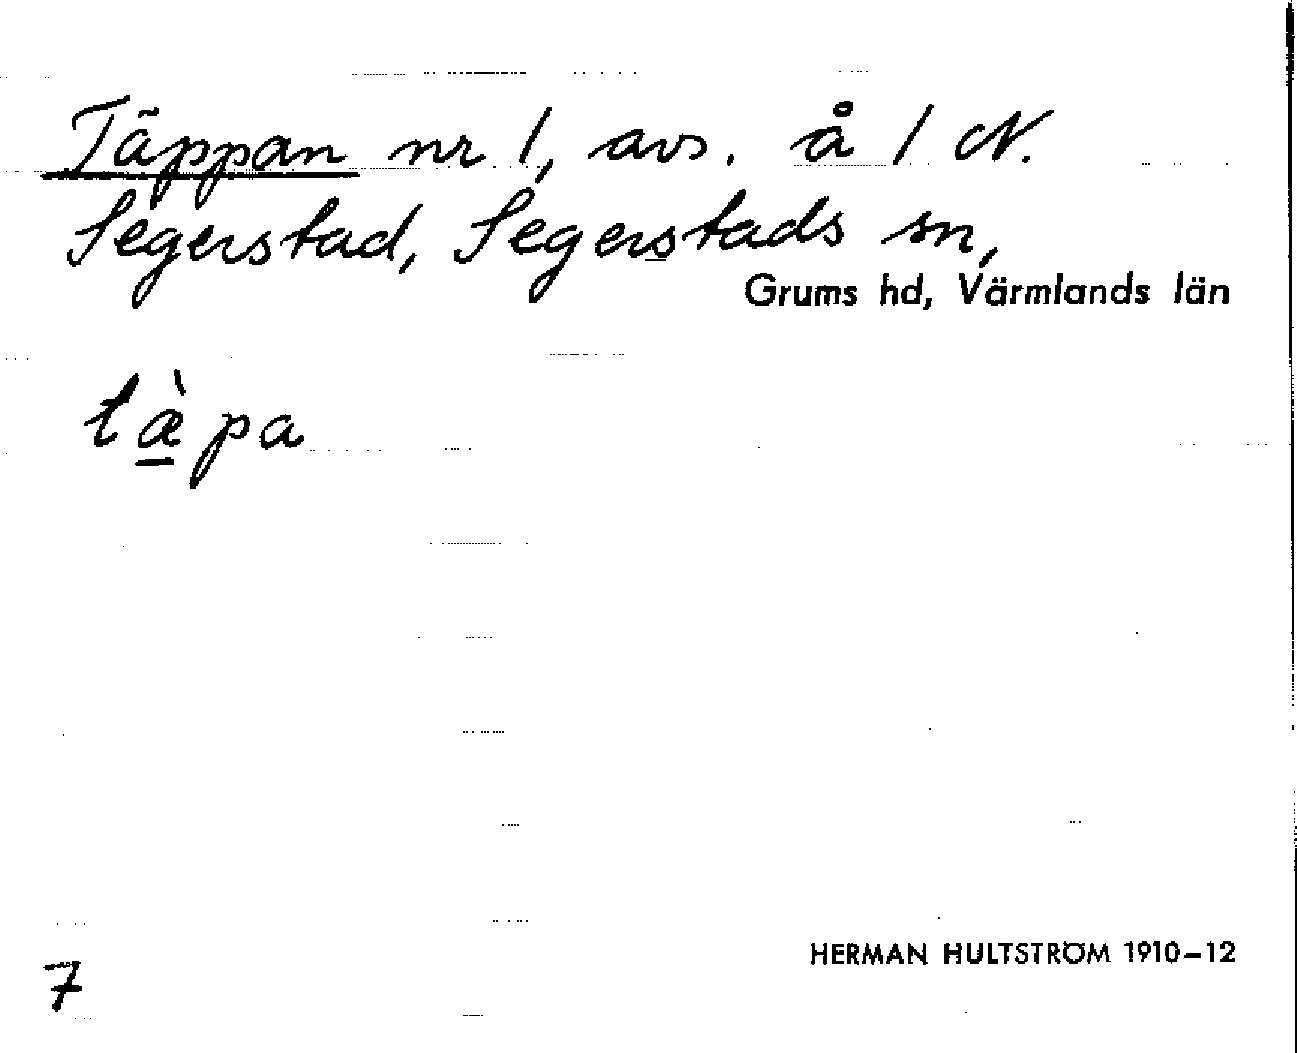 Täppan nr 1, avs. å 1 N.
Segerstad, Segerstads sn,
Grums hd, Värmlands län
tæ̀pa
HERMAN HULTSTRÖM 1910–12
7